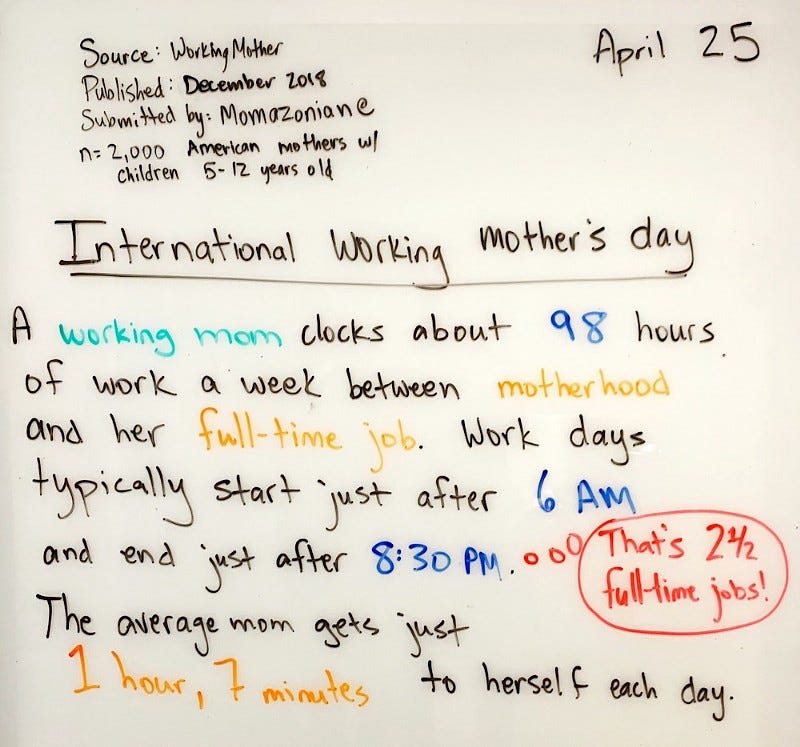 Source: WorkingMother
Published: December 2018
Submitted by: Momazoniane
n= 2,000 American mothers w/
children 5-12 years old
April 25
International Working mother's day
A working mom clocks about 98 hours
of work a week between motherhood
and her full-time job. Work days
typically start just after 6 AM
and end just after 8:30 PM.
That's 2 1/2
full-time jobs!
The average mom gets just
1 hour, 7 minutes to herself each day.